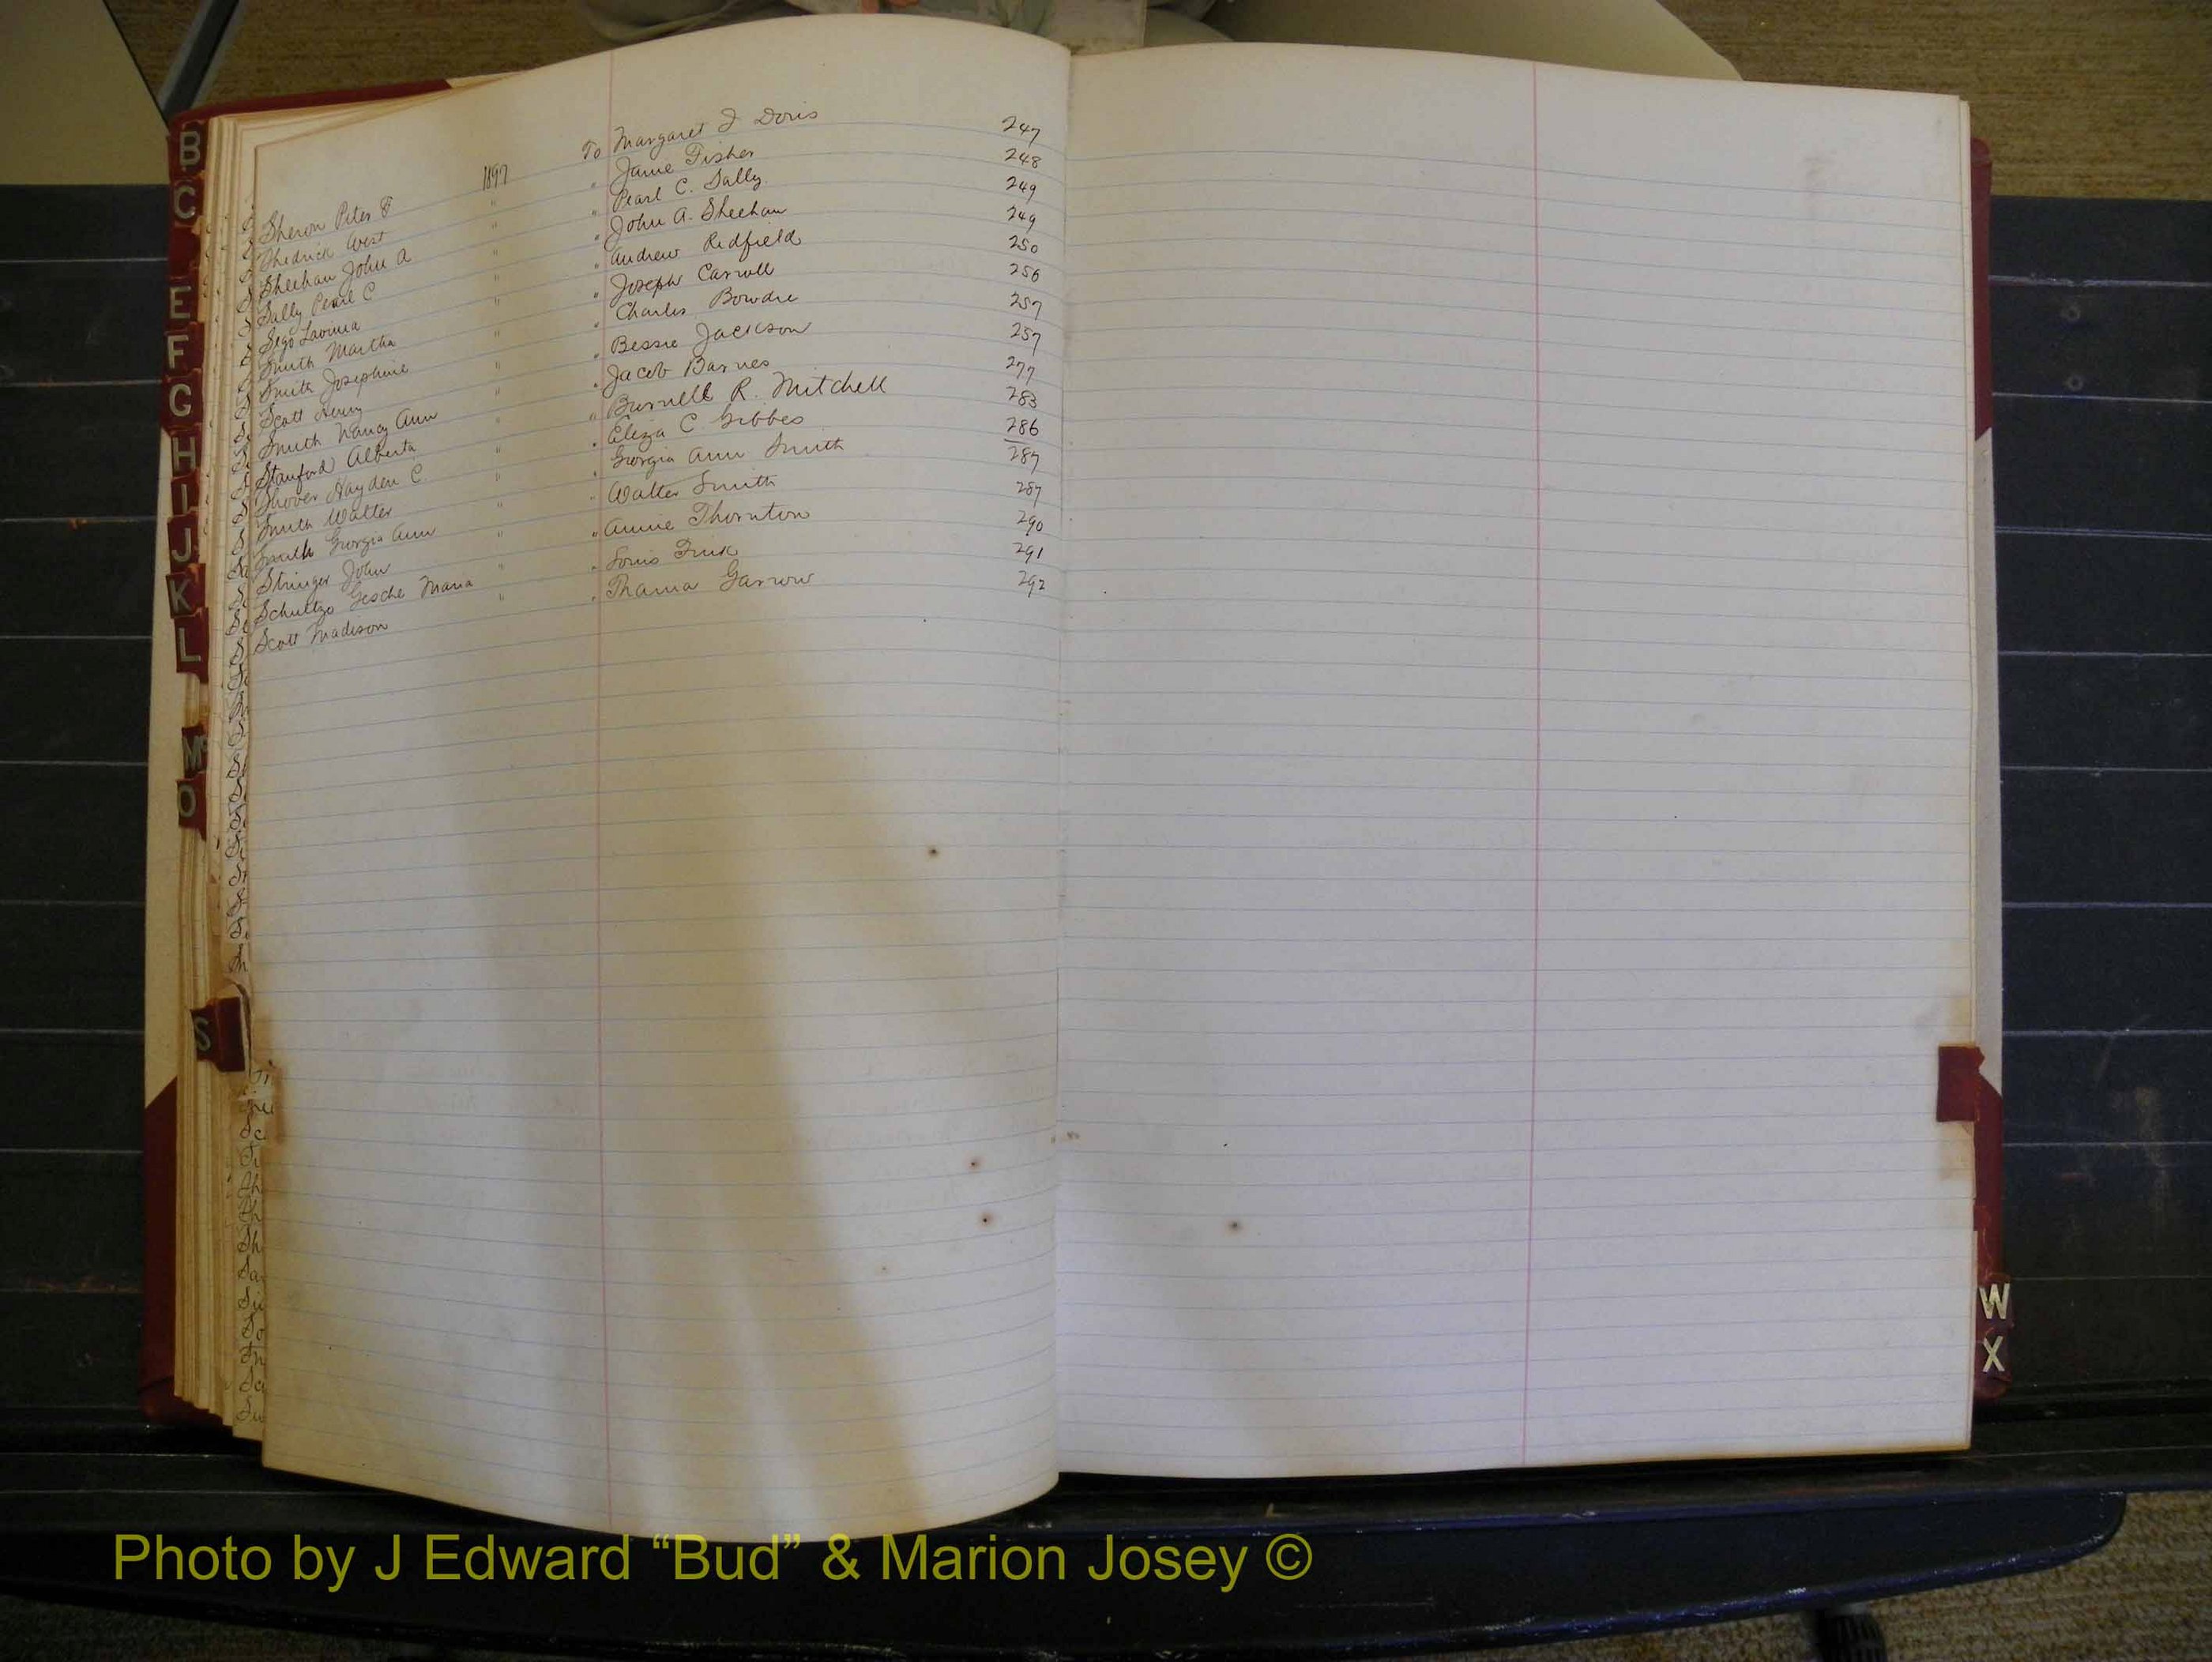 Sheron Peter F 1897 To Margaret I Doris 247
Shedrick West " " Janie Fisher 248
Sheehan John A " " Pearl C. Sally 249
Sally Pearl C " " John A. Sheehan 249
Sego Lavinia " " Andrew Redfield 250
Smith Martha " " Joseph Carroll 256
Smith Josephine " " Charles Bowdre 257
Scott Henry " " Bessie Jackson 257
Smith Nancy Ann " " Jacob Barnes 277
Stanford Alberta " " Burnell R. Mitchell 283
Shover Hayden C. " " Eliza C Gibbes 286
Smith Walter " " Georgia Ann Smith 287
Smith Georgia Ann " " Walter Smith 287
Stringer John " " Annie Thornton 290
Schultzo Gesche Maria " " Louis Fink 291
Scott Madison " " Garrow 292
B
C
E
F
G
H
I
J
K
L
Mc
O
S
W
X
Photo by J Edward “Bud” & Marion Josey ©